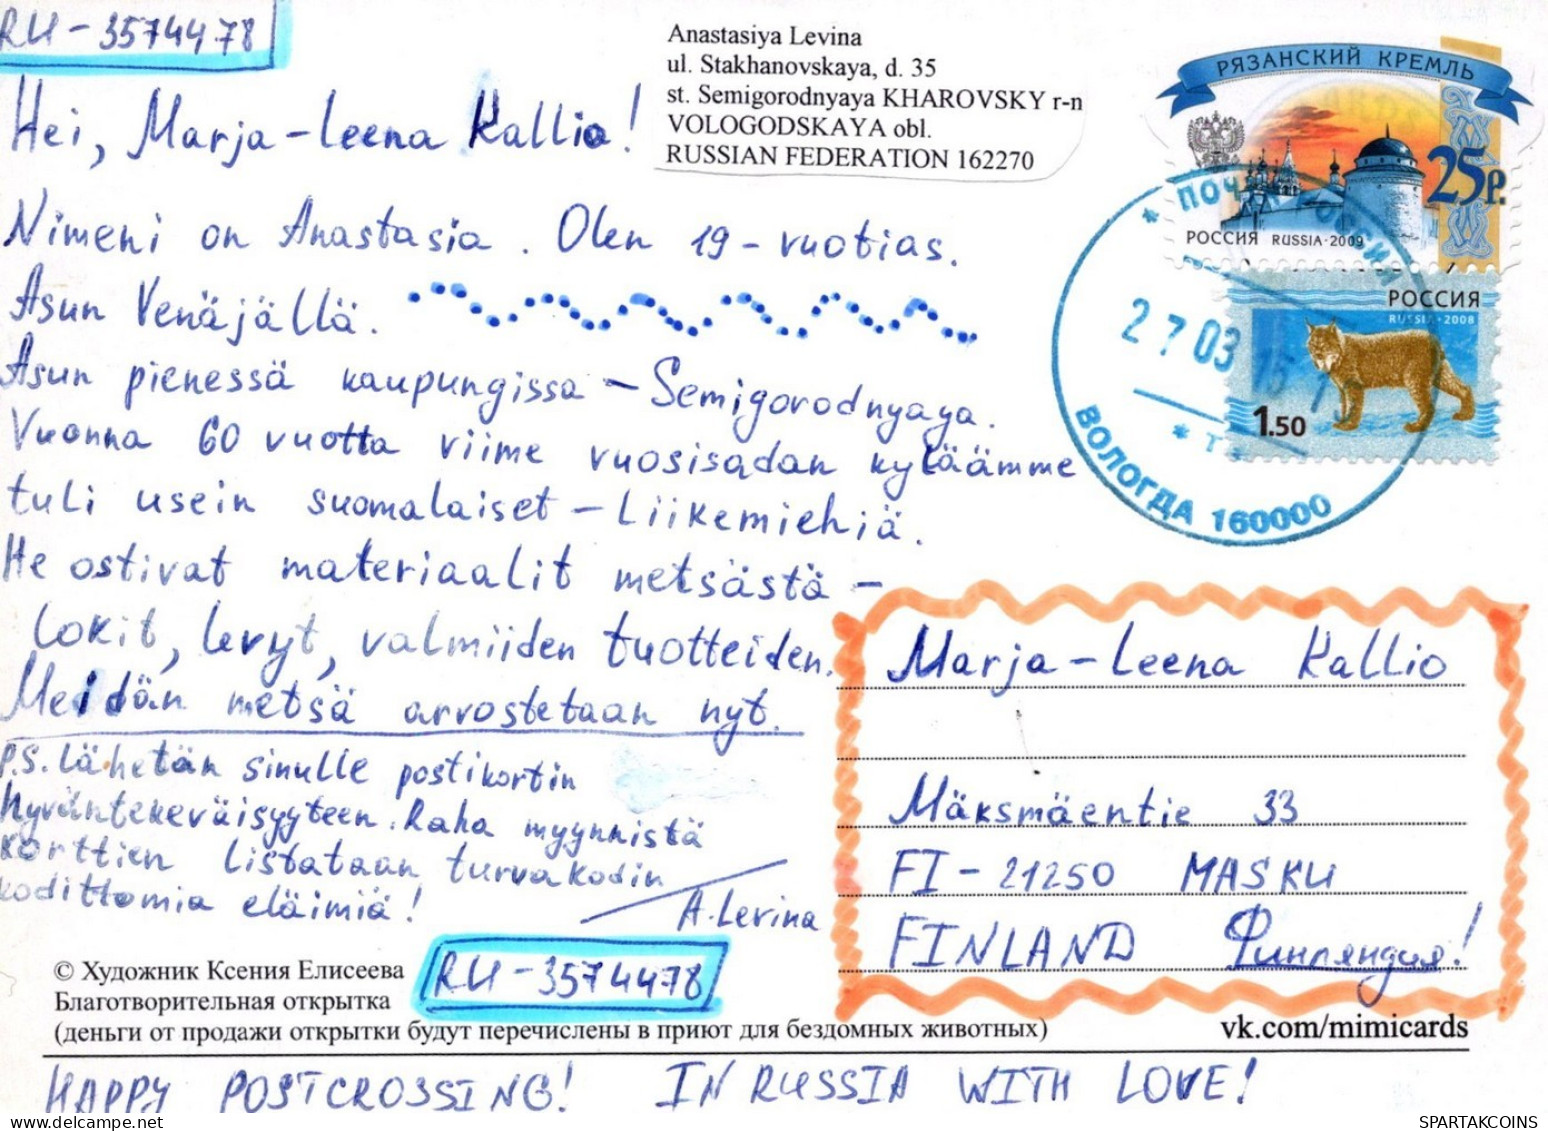 RU-3574478
Anastasiya Levina
ul. Stakhanovskaya, d. 35
st. Semigorodnyaya KHAROVSKY r-n
VOLOGODSKAYA obl.
RUSSIAN FEDERATION 162270
РЯЗАНСКИЙ КРЕМЛЬ
25р.
РОССИЯ RUSSIA·2009
РОССИЯ
RUSSIA·2008
1.50
27 03 15
ВОЛОГДА 160000
Hei, Marja-Leena Kallio!
Nimeni on Anastasia. Olen 19-vuotias.
Asun Venäjällä.
Asun pienessä kaupungissa - Semigorodnyaya.
Vuonna 60 vuotta viime vuosisadan kyläämme
tuli usein suomalaiset - Liikemiehiä.
He ostivat materiaalit metsästä -
Lokit, levyt, valmiiden tuotteiden.
Meidän metsä arvostetaan nyt.
P.S. Lähetän sinulle postikortin
hyväntekeväisyyteen. Raha myynnistä
korttien listataan turvakodin
kodittomia eläimiä!
A. Levina
Marja-Leena Kallio
Mäksmäentie 33
FI-21250 MASKU
FINLAND Финляндия!
RU-3574478
© Художник Ксения Елисеева
Благотворительная открытка
(деньги от продажи открытки будут перечислены в приют для бездомных животных)
vk.com/mimicards
HAPPY POSTCROSSING! IN RUSSIA WITH LOVE!
SPARTAKCOINS
www.delcampe.net